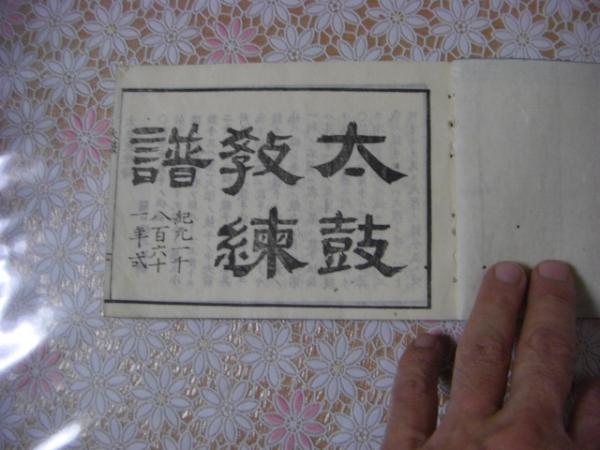 太鼓
教練
譜
紀元一千
八百六十
一年式